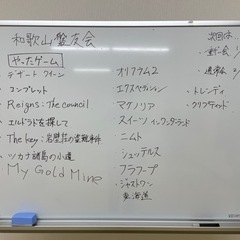 和歌山盤友会
やったゲーム
デザートクイーン
コンプレット
Reigns: The council
エルドラドを探して
The key: 岩壁荘の盗難事件
ツカナ諸島の小道
My Gold Mine
オリフラム2
エクスペディション
マグノリア
スイーツインワンダーランド
ニムト
シュッテルス
フラフープ
ジャストワン
東海道
次回は
通常会
トレンディ
クリプティッド